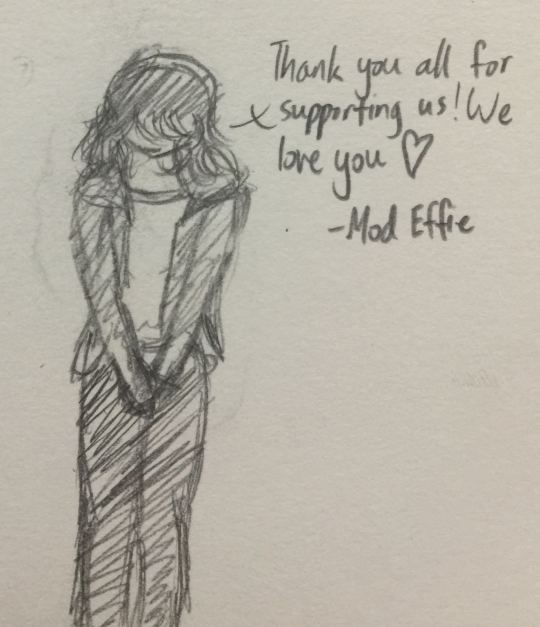 Thank you all for
supporting us! We
love you ♡
-Mod Effie